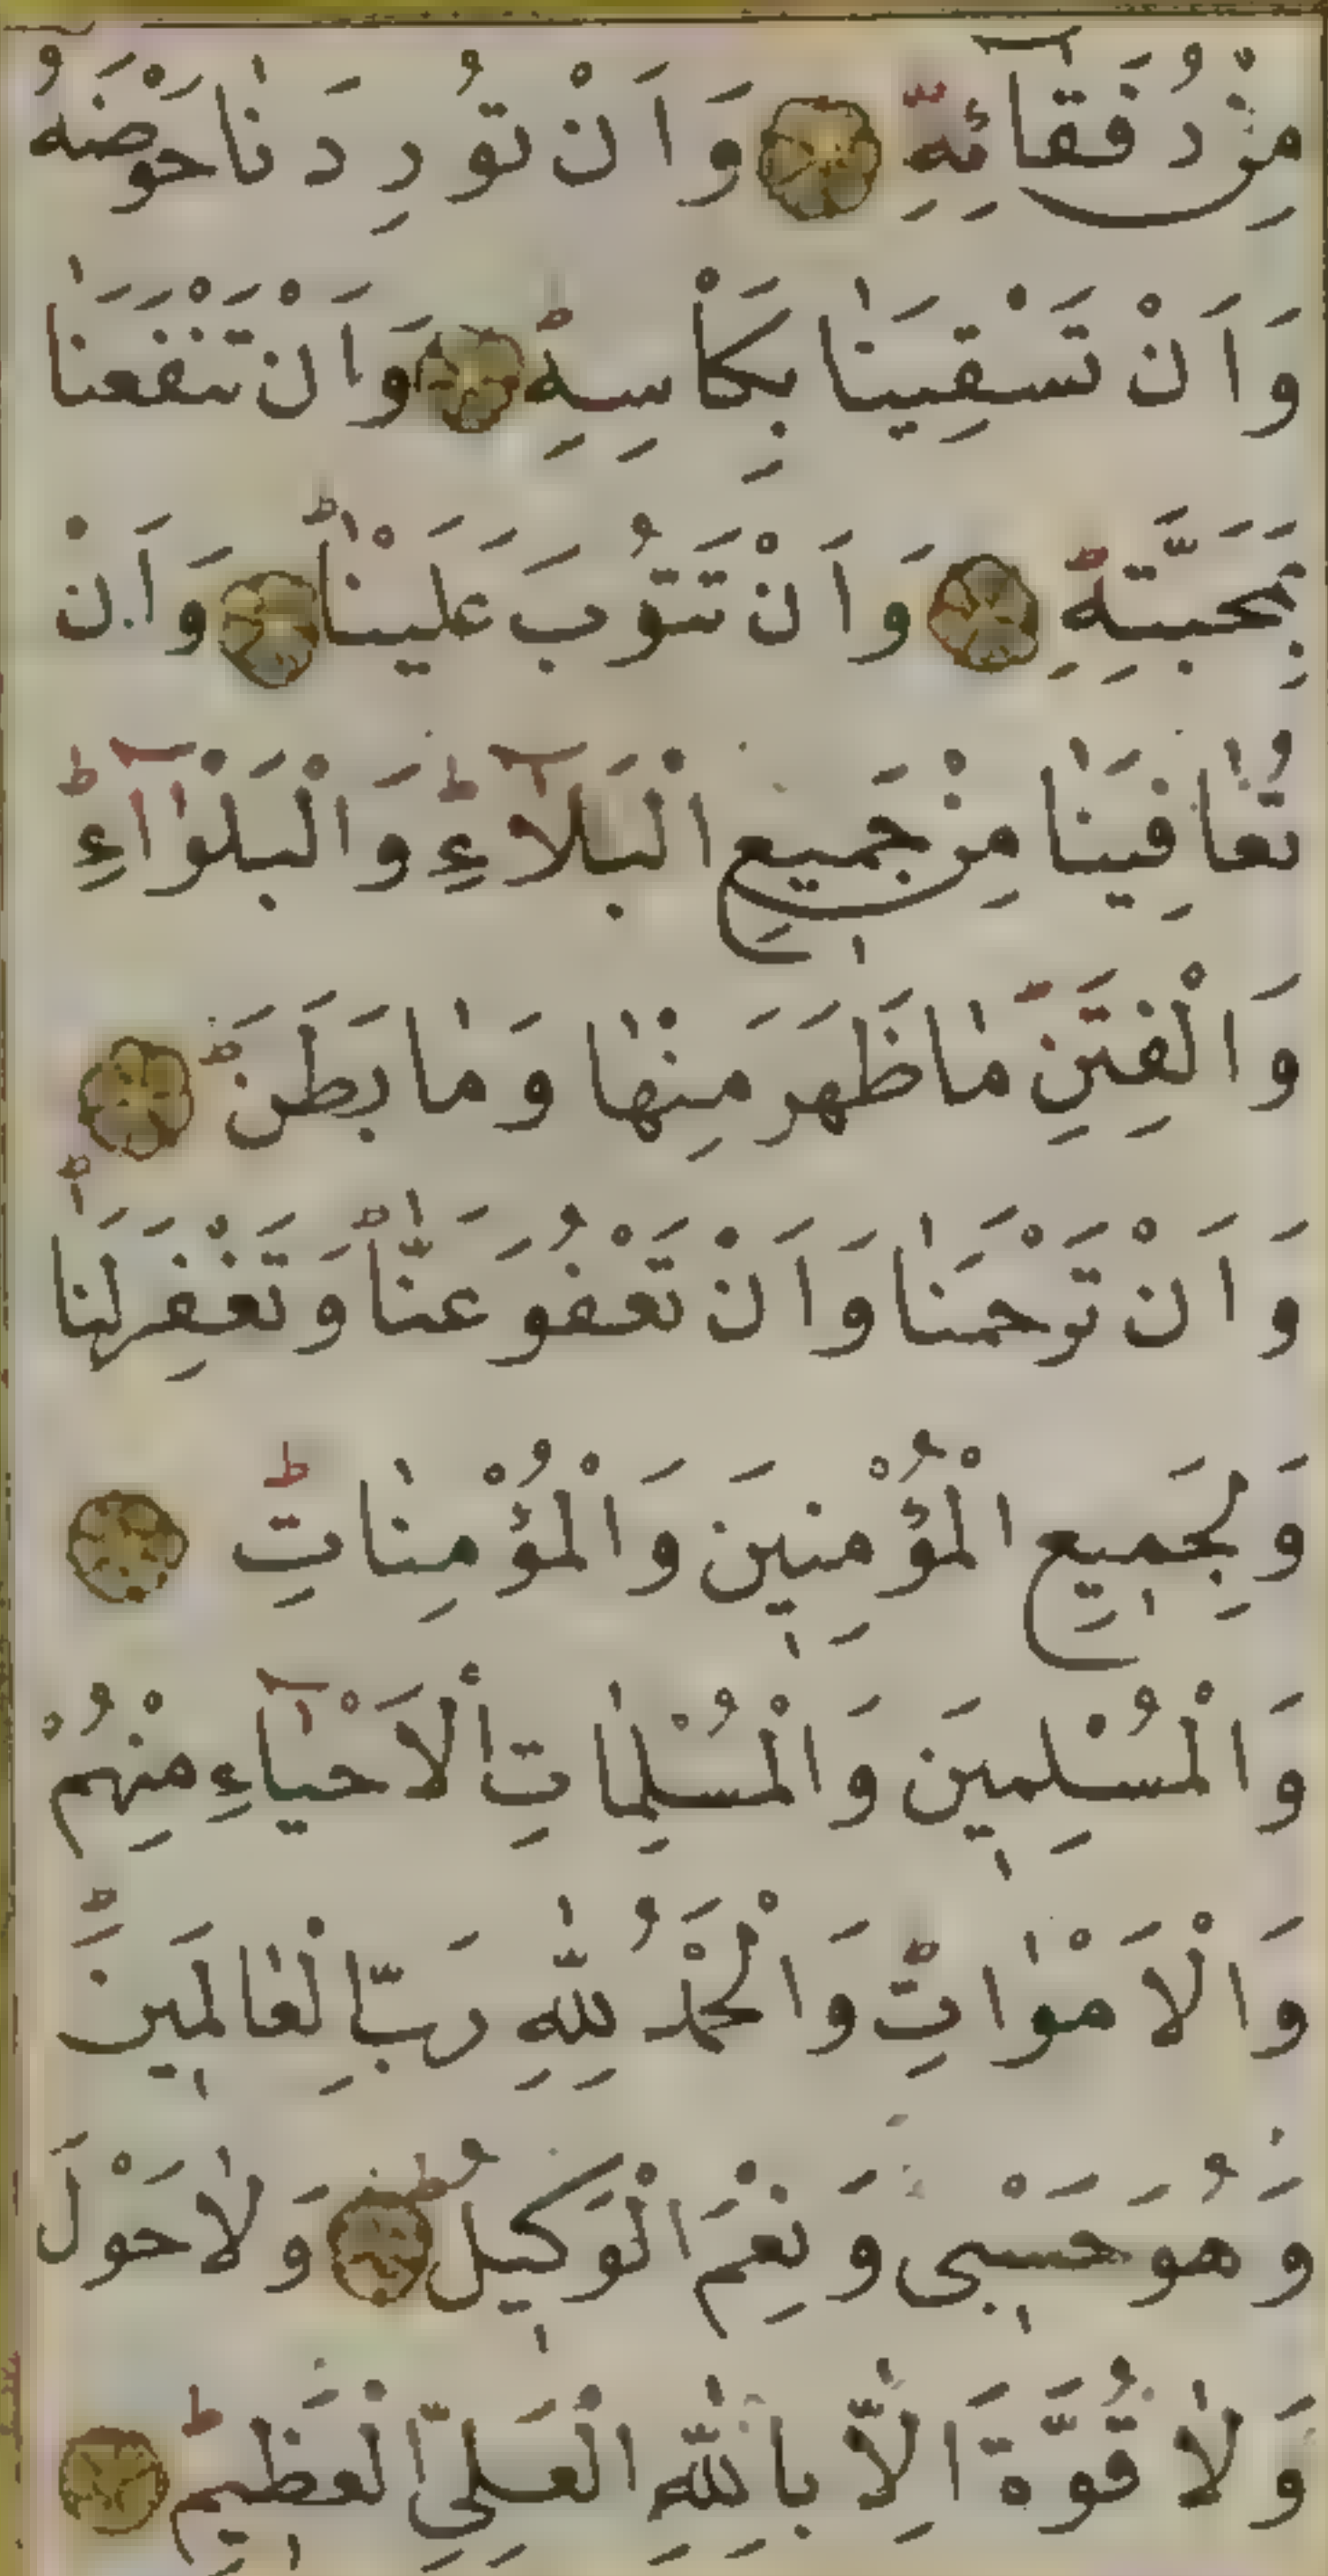 مِنْ رُفَقَآئِهِ وَاَنْ تُورِدَنَا حَوْضَهُ
وَاَنْ تَسْقِيَنَا بِكَاْسِهِ وَاَنْ تَنْفَعَنَا
بِمَحَبَّتِهِ وَاَنْ تَتُوبَ عَلَيْنَا وَاَنْ
تُعَافِيَنَا مِنْ جَمِيعِ الْبَلَآءِ وَالْبَلْوَآءِ
وَالْفِتَنِ مَا ظَهَرَ مِنْهَا وَمَا بَطَنَ
وَاَنْ تَرْحَمَنَا وَاَنْ تَعْفُوَ عَنَّا وَتَغْفِرَ لَنَا
وَلِجَمِيعِ الْمُؤْمِنِينَ وَالْمُؤْمِنَاتِ
وَالْمُسْلِمِينَ وَالْمُسْلِمَاتِ أَلْاَحْيَآءِ مِنْهُمْ
وَالْاَمْوَاتِ وَالْحَمْدُ لِلّٰهِ رَبِّ الْعَالَمِينَ
وَهُوَ حَسْبِى وَنِعْمَ الْوَكِيلُ وَلَا حَوْلَ
وَلَا قُوَّةَ اِلَّا بِاللّٰهِ الْعَلِىِّ الْعَظِيمِ